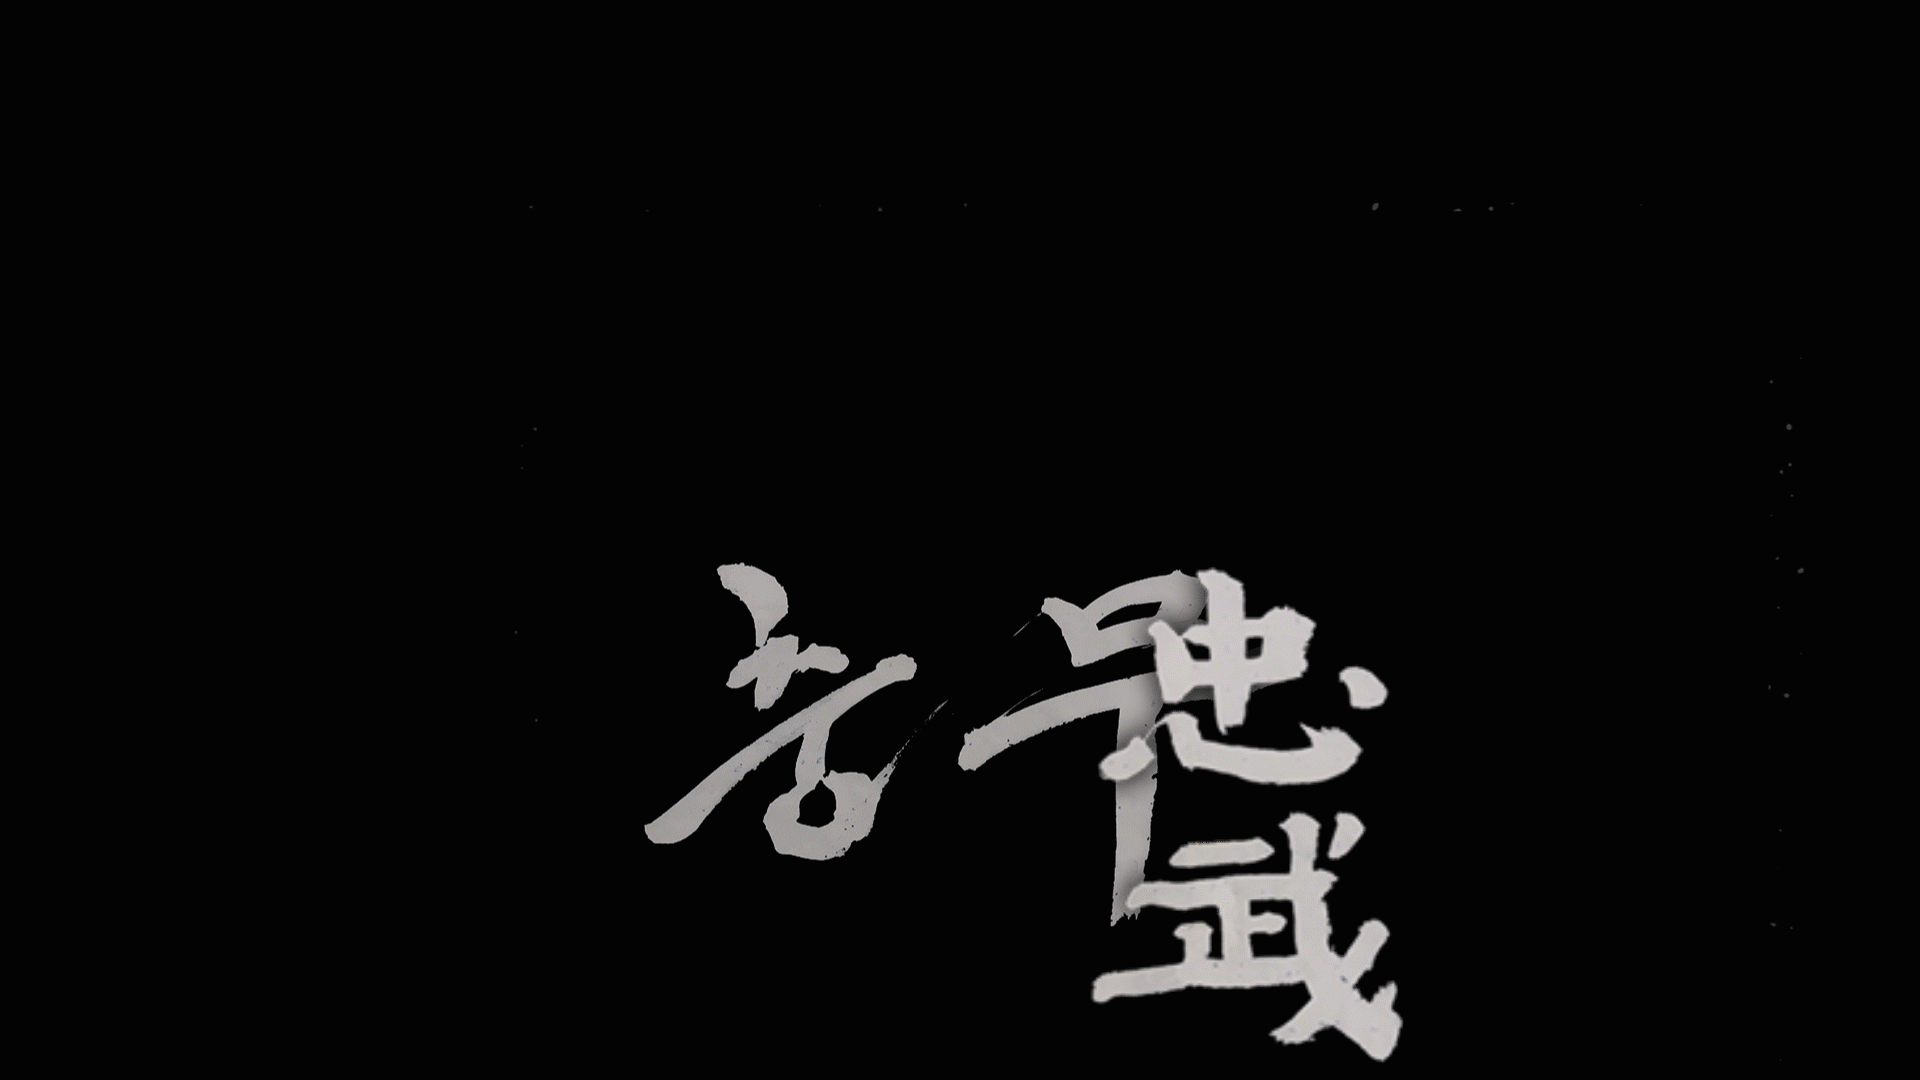 충무
忠
武